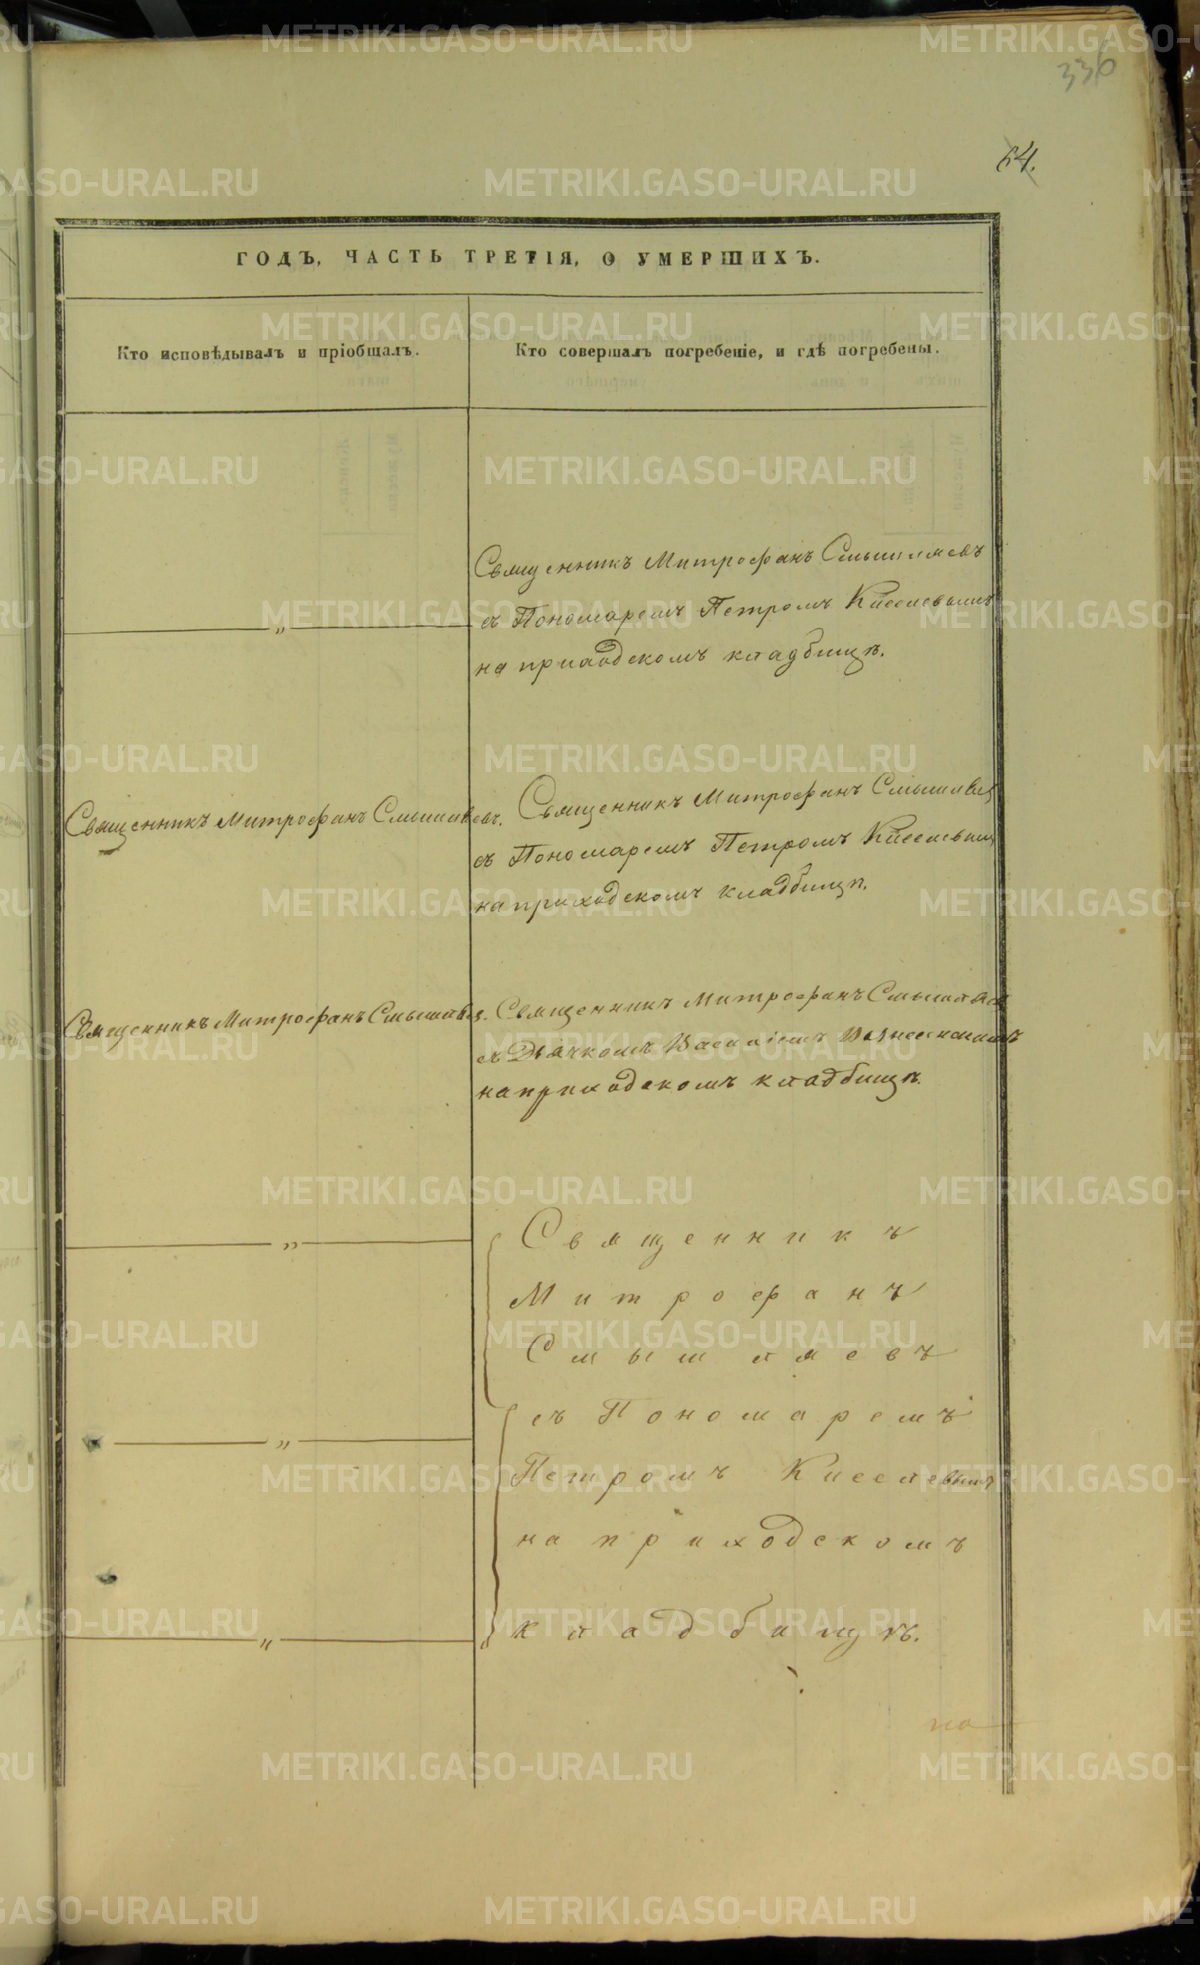 336
64.
ГОДЪ, ЧАСТЬ ТРЕТІЯ, О УМЕРШИХЪ.
Кто исповѣдывалъ и пріобщалъ.
Кто совершалъ погребеніе, и гдѣ погребены.
Священникъ Митрофанъ Смышляевъ
съ Пономаремъ Петромъ Киселевымъ
на приходскомъ кладбищѣ.
„
Священникъ Митрофанъ Смышляевъ.
Священникъ Митрофанъ Смышляевъ
съ Пономаремъ Петромъ Киселевымъ
на приходскомъ кладбищѣ.
Священникъ Митрофанъ Смышляевъ.
Священникъ Митрофанъ Смышляевъ
съ Дьячкомъ Василіемъ Вознесенскимъ
на приходскомъ кладбищѣ.
„
Священникъ
Митрофанъ
Смышляевъ
съ Пономаремъ
„
Петромъ Киселевымъ
на приходскомъ
кладбищѣ.
„
по
METRIKI.GASO-URAL.RU